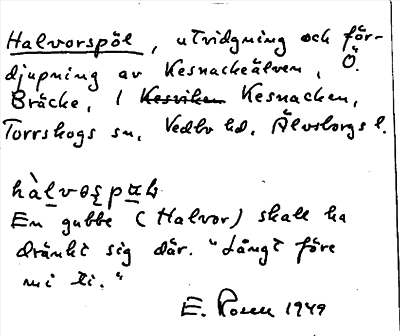 Halvorspöl, utvidgning och för-
djupning av Kesnackeälven, Ö.
Bräcke, i Kesviken Kesnacken,
Torrskogs sn, Vedbo hd, Älvsborgs l.
En gubbe (Halvor) skall ha
dränkt sig där. "Långt före
mi ti."
E. Rosen 1949